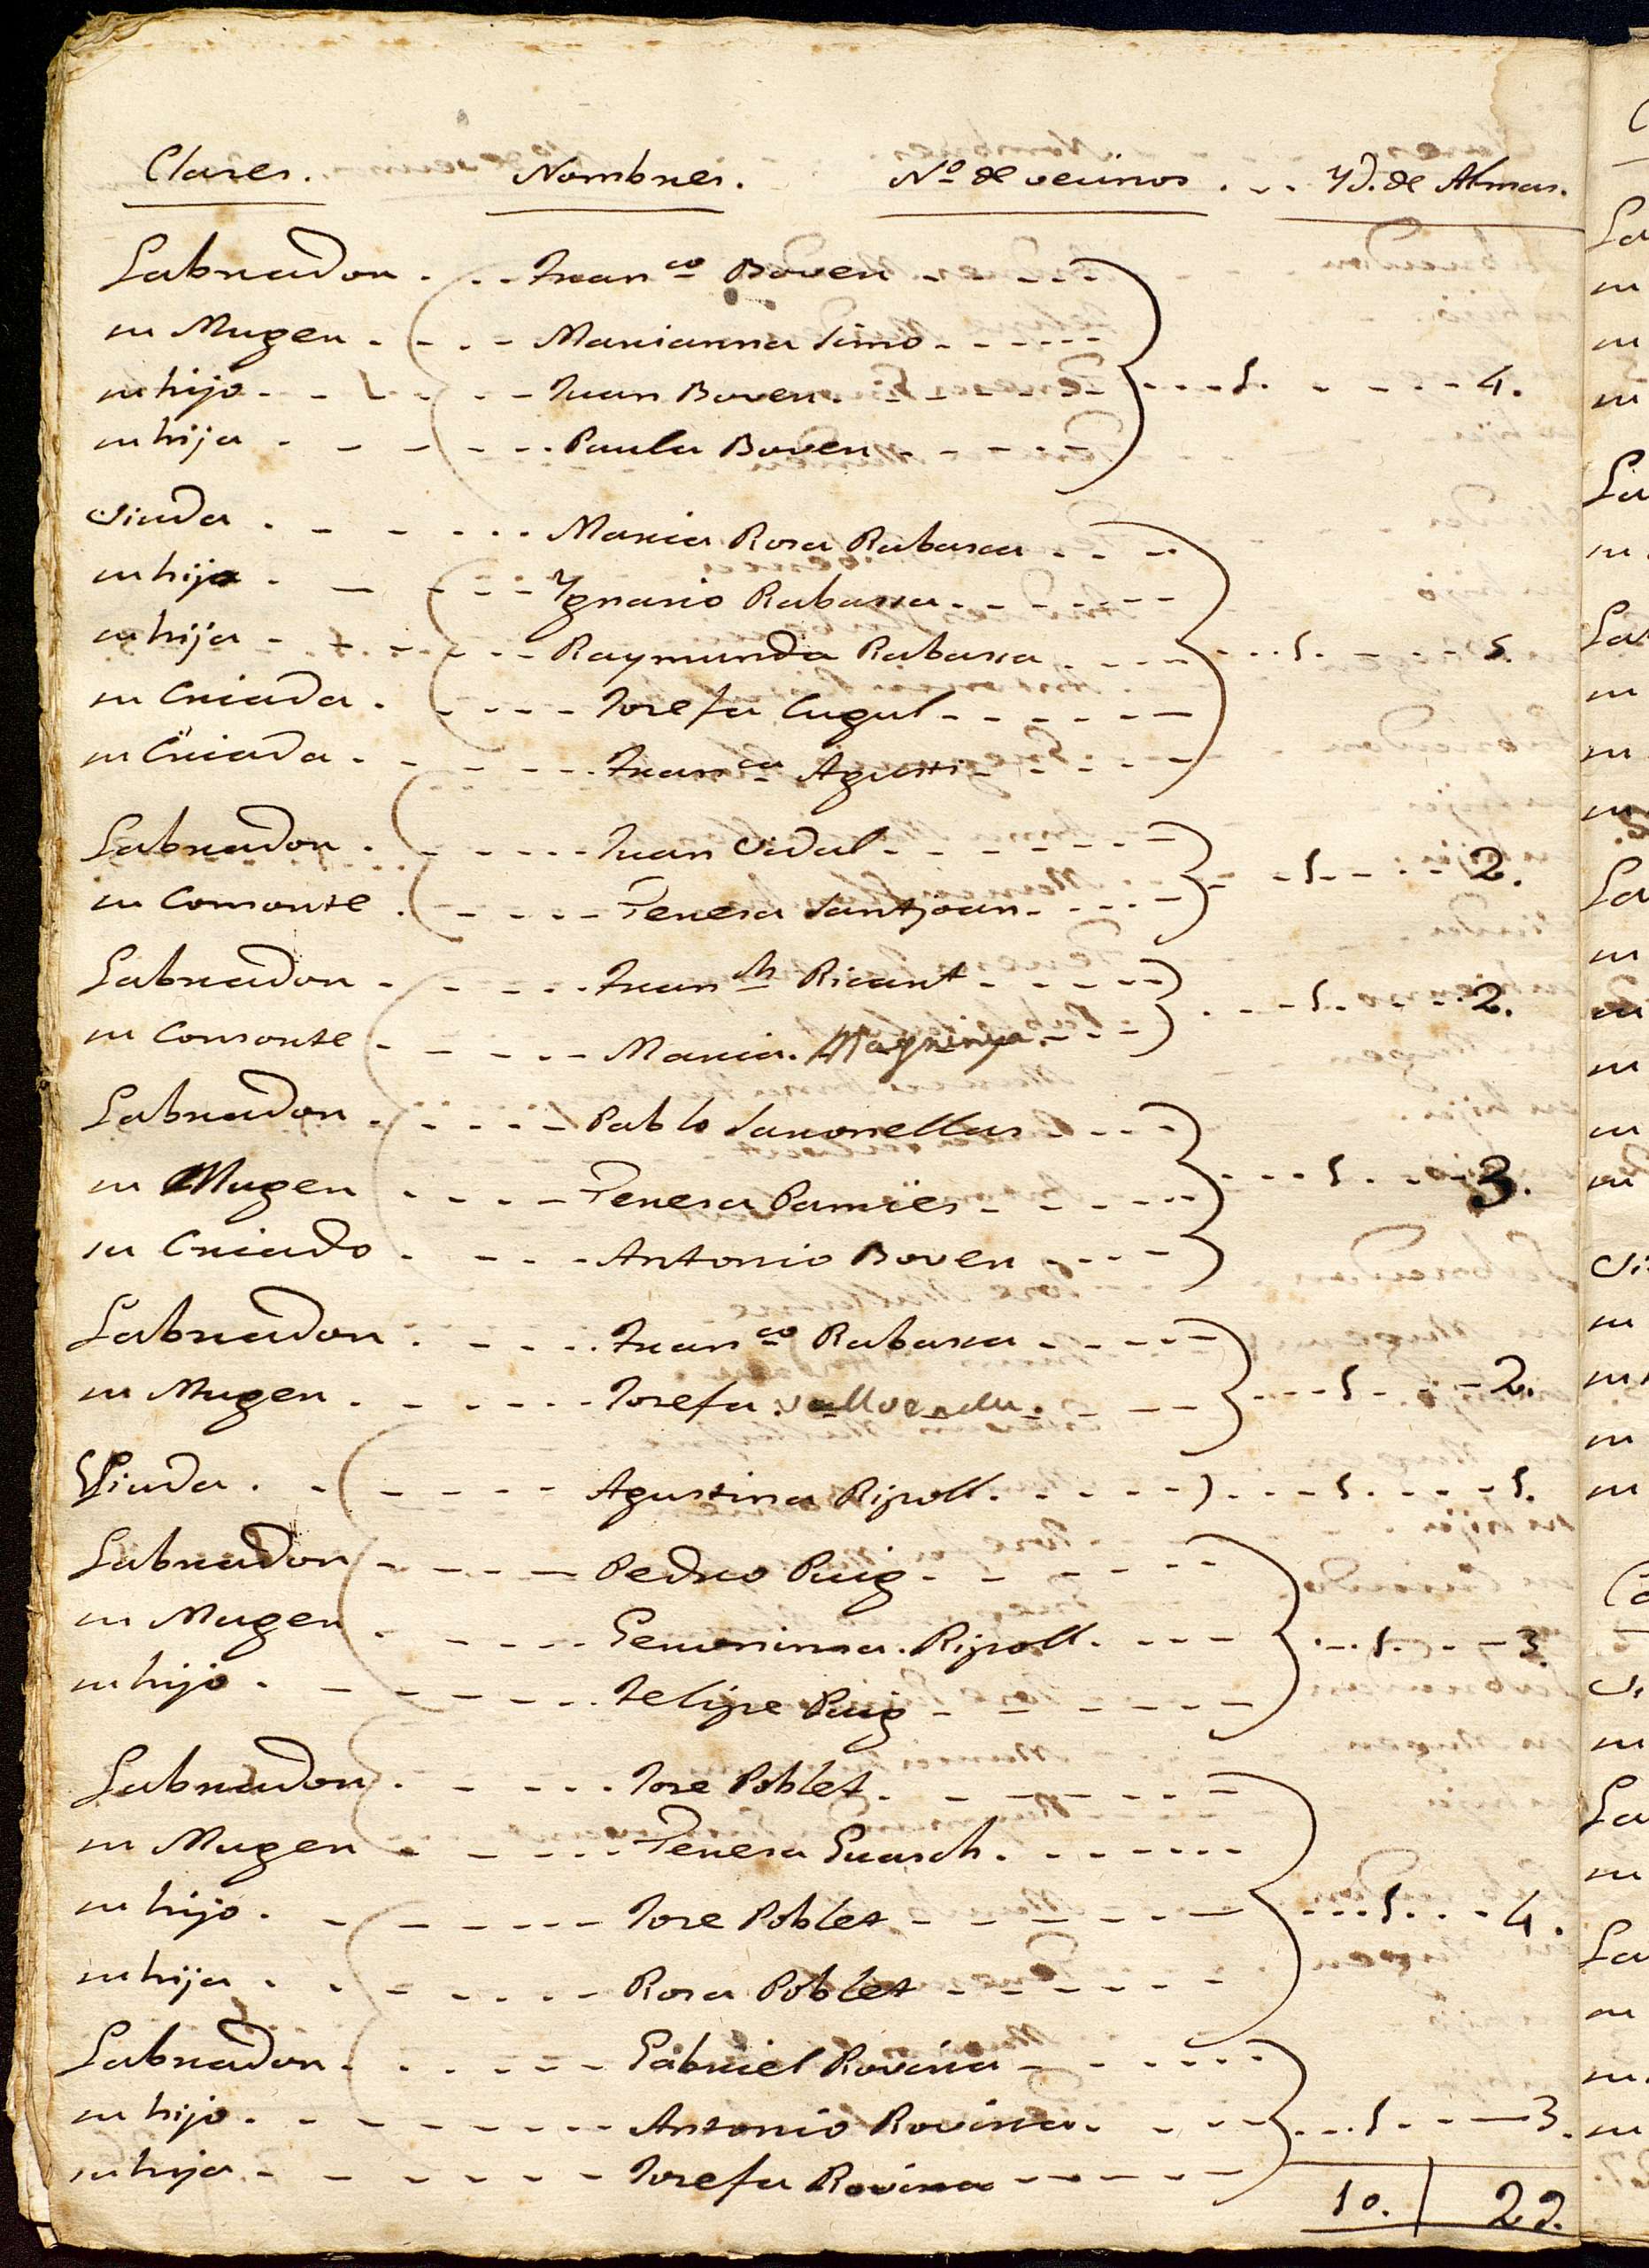 Clases. Nombres. Nº de vecinos . . . Yd. de Almas.
Labrador . . . Franco Bover - - - - -
su Muger . - . - Marianna Simo - - - - -
su hijo - - - - - Juan Bover. - - - - - 1. - - - - 4.
su hija - - - - - Paula Bover - - - - -
Viuda . - - - . . . Maria Rosa Rabassa . - - -
su hijo . - - - - Ygnasio Rabassa - - - - -
su hija - - - - - Raymunda Rabassa . - - - - - 1. - - - 5.
su Criada . - - - - Josefa Cugul - - - - -
su Criada . - - - - Franca Agusti - - - - -
Labrador . - - - - Juan Vidal - - - - - 1 - - - 2.
su Consorte . - - - - Teresa Santjoan - - - -
Labrador . - - - - Franch Ricart - - - - - 1. - - - 2.
su Consorte - - - - - Maria. Magrinya. - - -
Labrador . - - - - Pablo Saronellas - - - -
su Muger . - - - Teresa Pamies - - - - - 1. - - - 3.
su Criado . - - - Antonio Bover - - - -
Labrador . - - - . Franco Rabassa - - - - -
su Muger . - - - - Josefa vallverdu. - - - - 1 - - - 2.
Viuda . . - - - - Agustina Ripoll. - - - - - 1 - - - - 1.
Labrador - - - - Pedro Puig - - - - -
su Muger . - - - - Geronima. Ripoll. - - - - 1. - - - 3.
su hijo . - - - - - Felipe Puig - - - - -
Labrador . - - - - Jose Poblet. - - - - -
su Muger - - - - - Teresa Guasch. - - - - -
su hijo . - - - - - Jose Poblet - - - - - 1. - - - 4.
su hija . - - - - - Rosa Poblet - - - - -
Labrador . - - - - Gabriel Rovira - - - - -
su hijo . - - - - - Antonio Rovira. - - - - 1. - - - 3.
su hija . - - - - - Josefa Rovira - - - - -
10. 29.